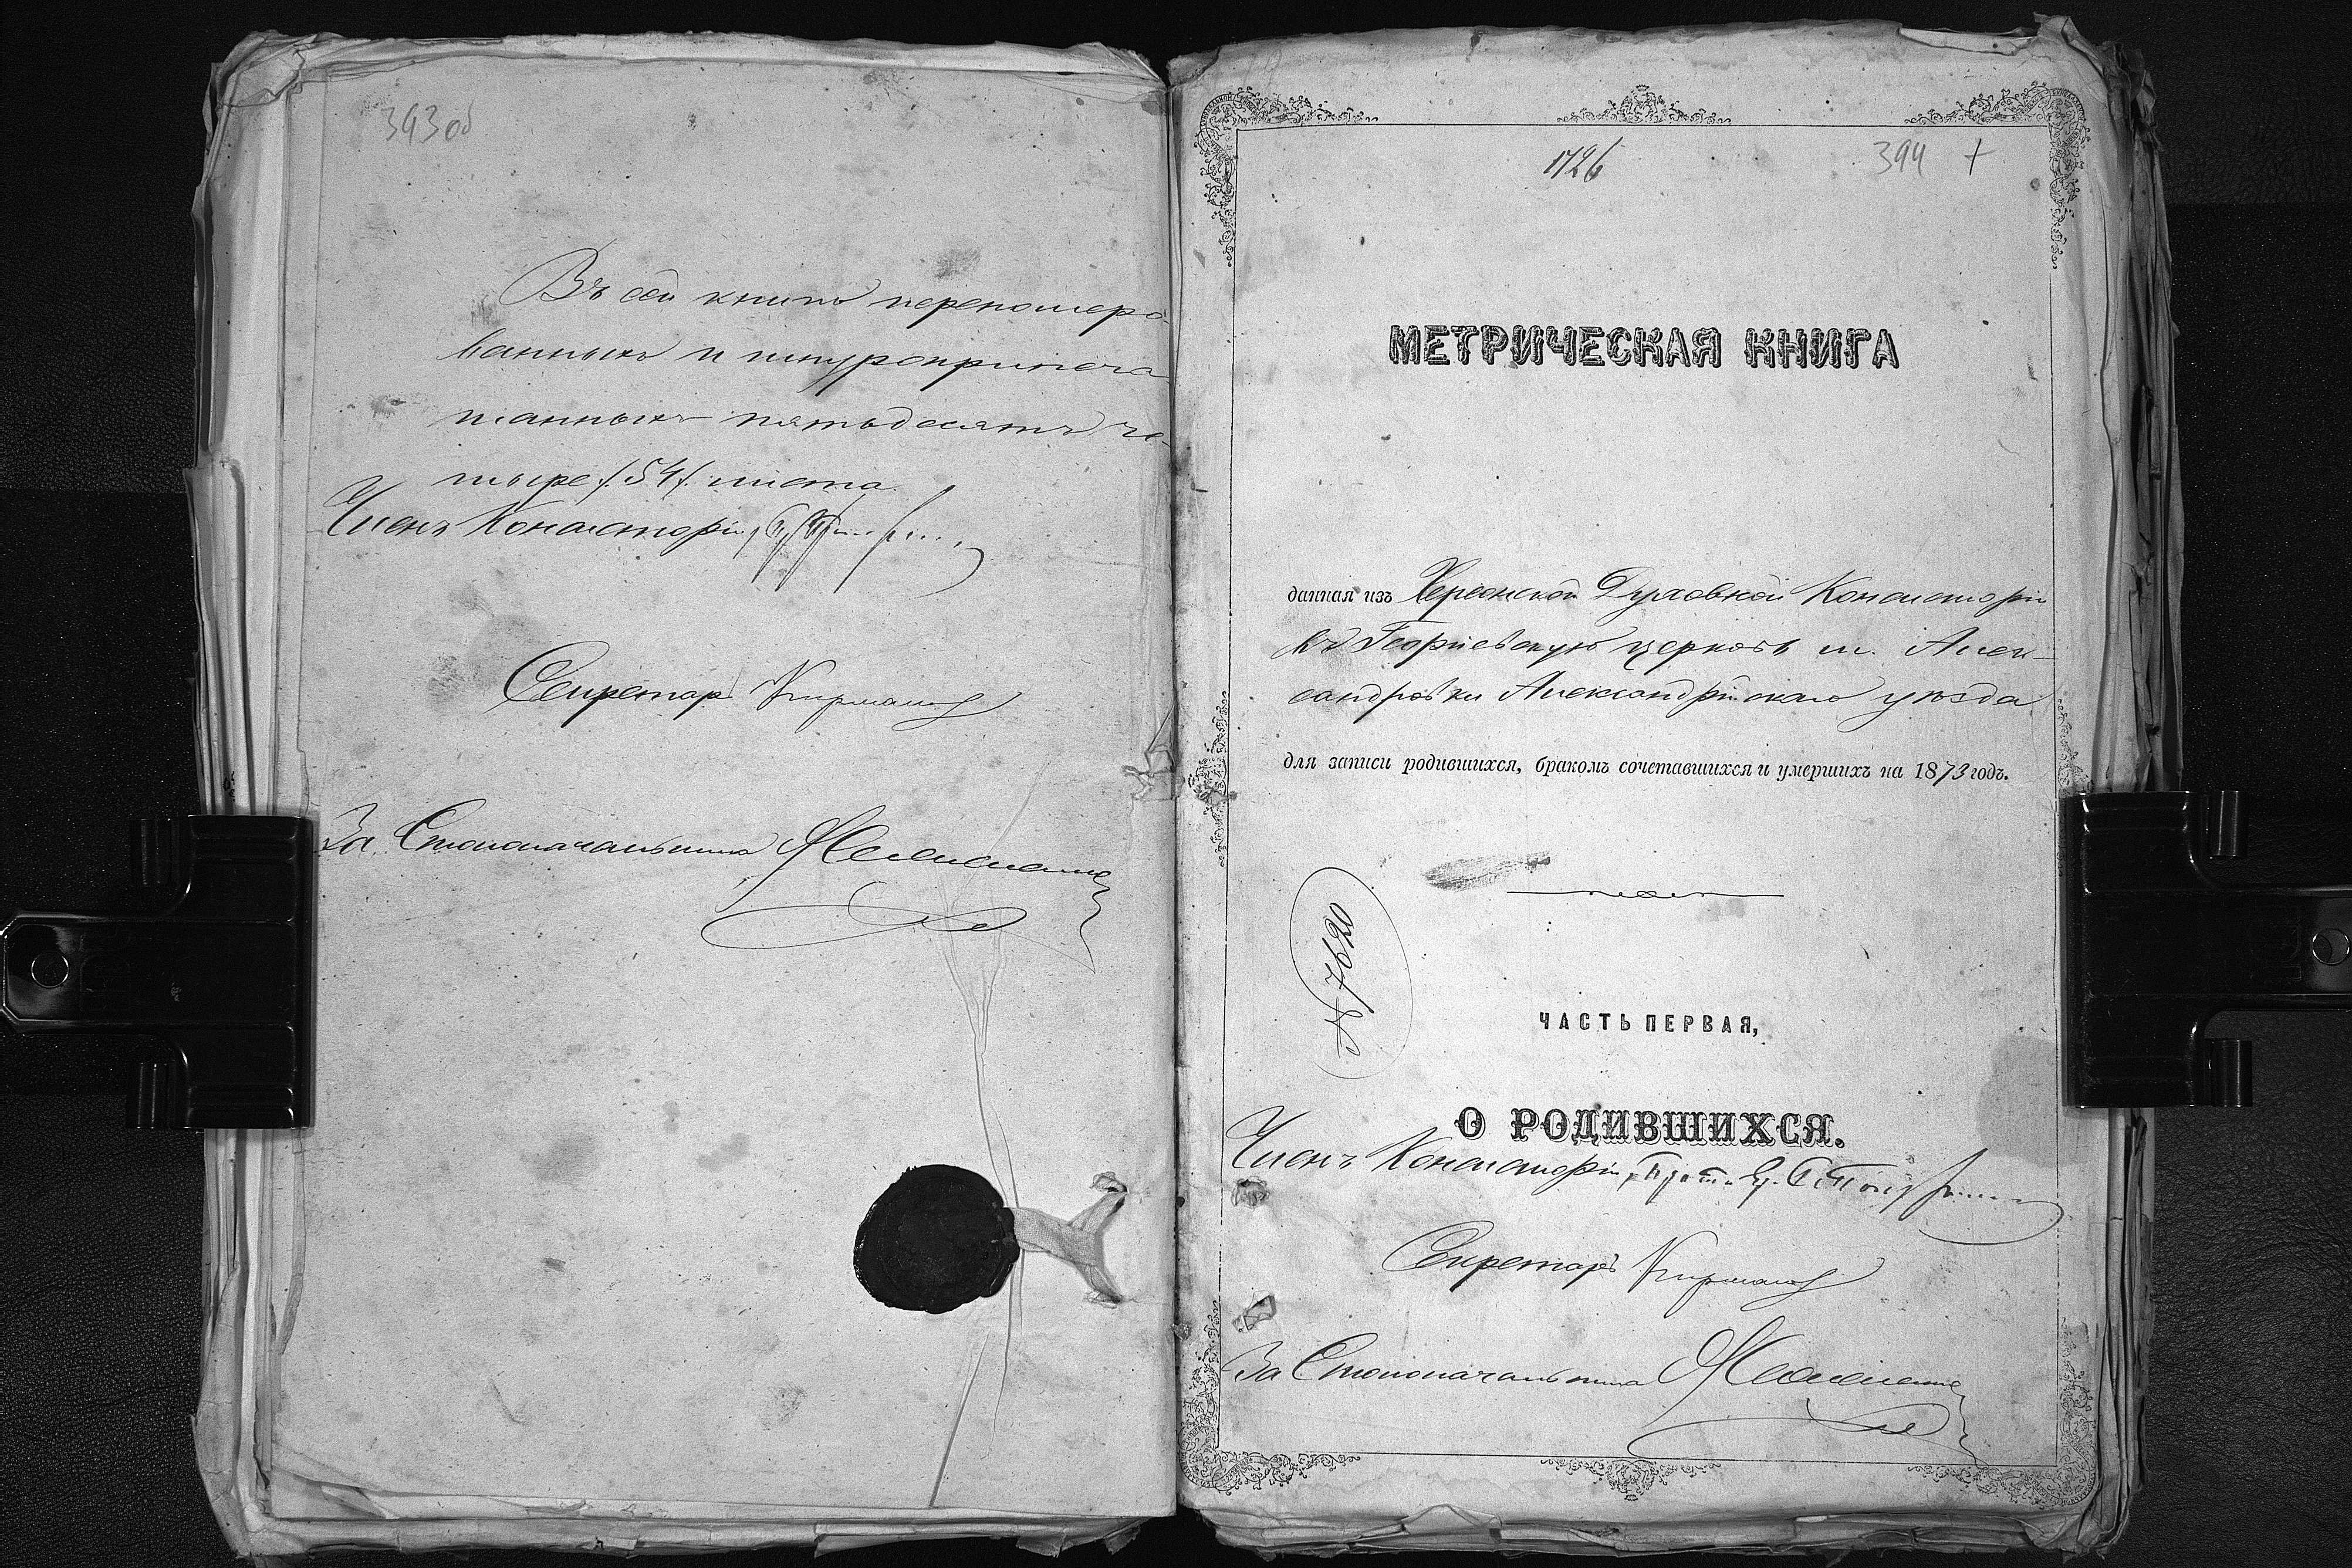 393 об
Въ сей книгѣ перенумеро-
ванныхъ и шнуроприпеча-
танныхъ пятьдесятъ че-
тыре /54/ листа.
Членъ Консисторіи,
Секретарь
За Столоначальника
1726
394 +
МЕТРИЧЕСКАЯ КНИГА
данная изъ Херсонской Духовной Консисторіи
въ Георгіевскую церковь м. Алек-
сандровки Александрійскаго уѣзда
для записи родившихся, бракомъ сочетавшихся и умершихъ на 1873 годъ.
№ 7620
ЧАСТЬ ПЕРВАЯ,
О РОДИВШИХСЯ.
Членъ Консисторіи,
Секретарь
За Столоначальника